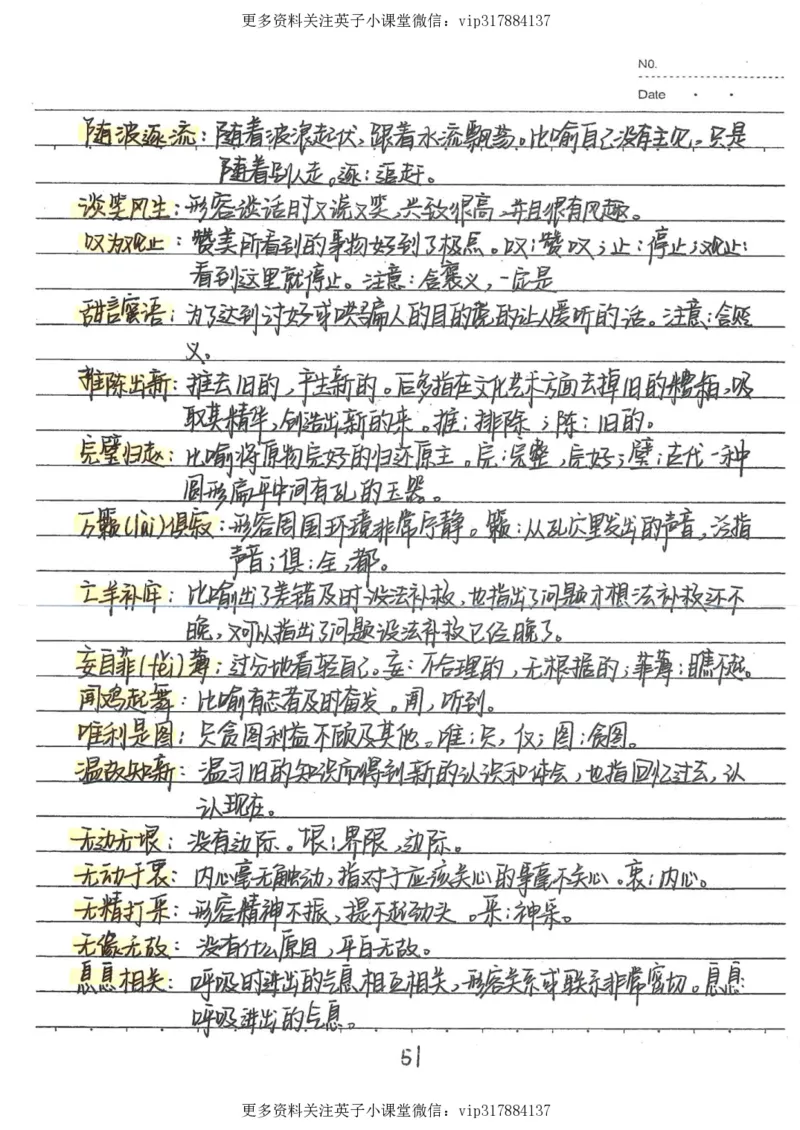 更多资料关注英子小课堂微信：vip317884137
NO.
Date
随波逐流：随着波浪起伏，跟着水流飘荡。比喻自己没有主见，只是
随着别人走。逐：追赶。
谈笑风生：形容谈话时又说又笑，兴致很高，并且很有风趣。
叹为观止：赞美所看到的事物好到了极点。叹：赞叹；止：停止；观止：
看到这里就停止。注意：含褒义，一定是
甜言蜜语：为了达到讨好或哄骗人的目的说的让人爱听的话。注意：含贬
义。
推陈出新：推去旧的，产生新的。后多指在文化艺术方面去掉旧的糟粕，吸
取其精华，创造出新的来。推：排除；陈：旧的。
完璧归赵：比喻将原物完好的归还原主。完：完整，完好；璧：古代一种
圆形扁平中间有孔的玉器。
万籁(lài)俱寂：形容周围环境非常宁静。籁：从孔穴里发出的声音，泛指
声音；俱：全，都。
亡羊补牢：比喻出了差错及时设法补救，也指出了问题才想法补救还不
晚，又可以指出了问题设法补救已经晚了。
妄自菲(fěi)薄：过分地看轻自己。妄：不合理的，无根据的；菲薄：瞧不起。
闻鸡起舞：比喻有志者及时奋发。闻，听到。
唯利是图：只贪图利益不顾及其他。唯：只，仅；图：贪图。
温故知新：温习旧的知识而得到新的认识和体会，也指回忆过去，认
认现在。
无边无垠：没有边际。垠：界限，边际。
无动于衷：内心毫无触动，指对于应该关心的事毫不关心。衷：内心。
无精打采：形容精神不振，提不起劲头。采：神采。
无缘无故：没有什么原因，平白无故。
息息相关：呼吸时进出的气息相互相关，形容关系或联系非常密切。息息：
呼吸进出的气息。
51
更多资料关注英子小课堂微信：vip317884137